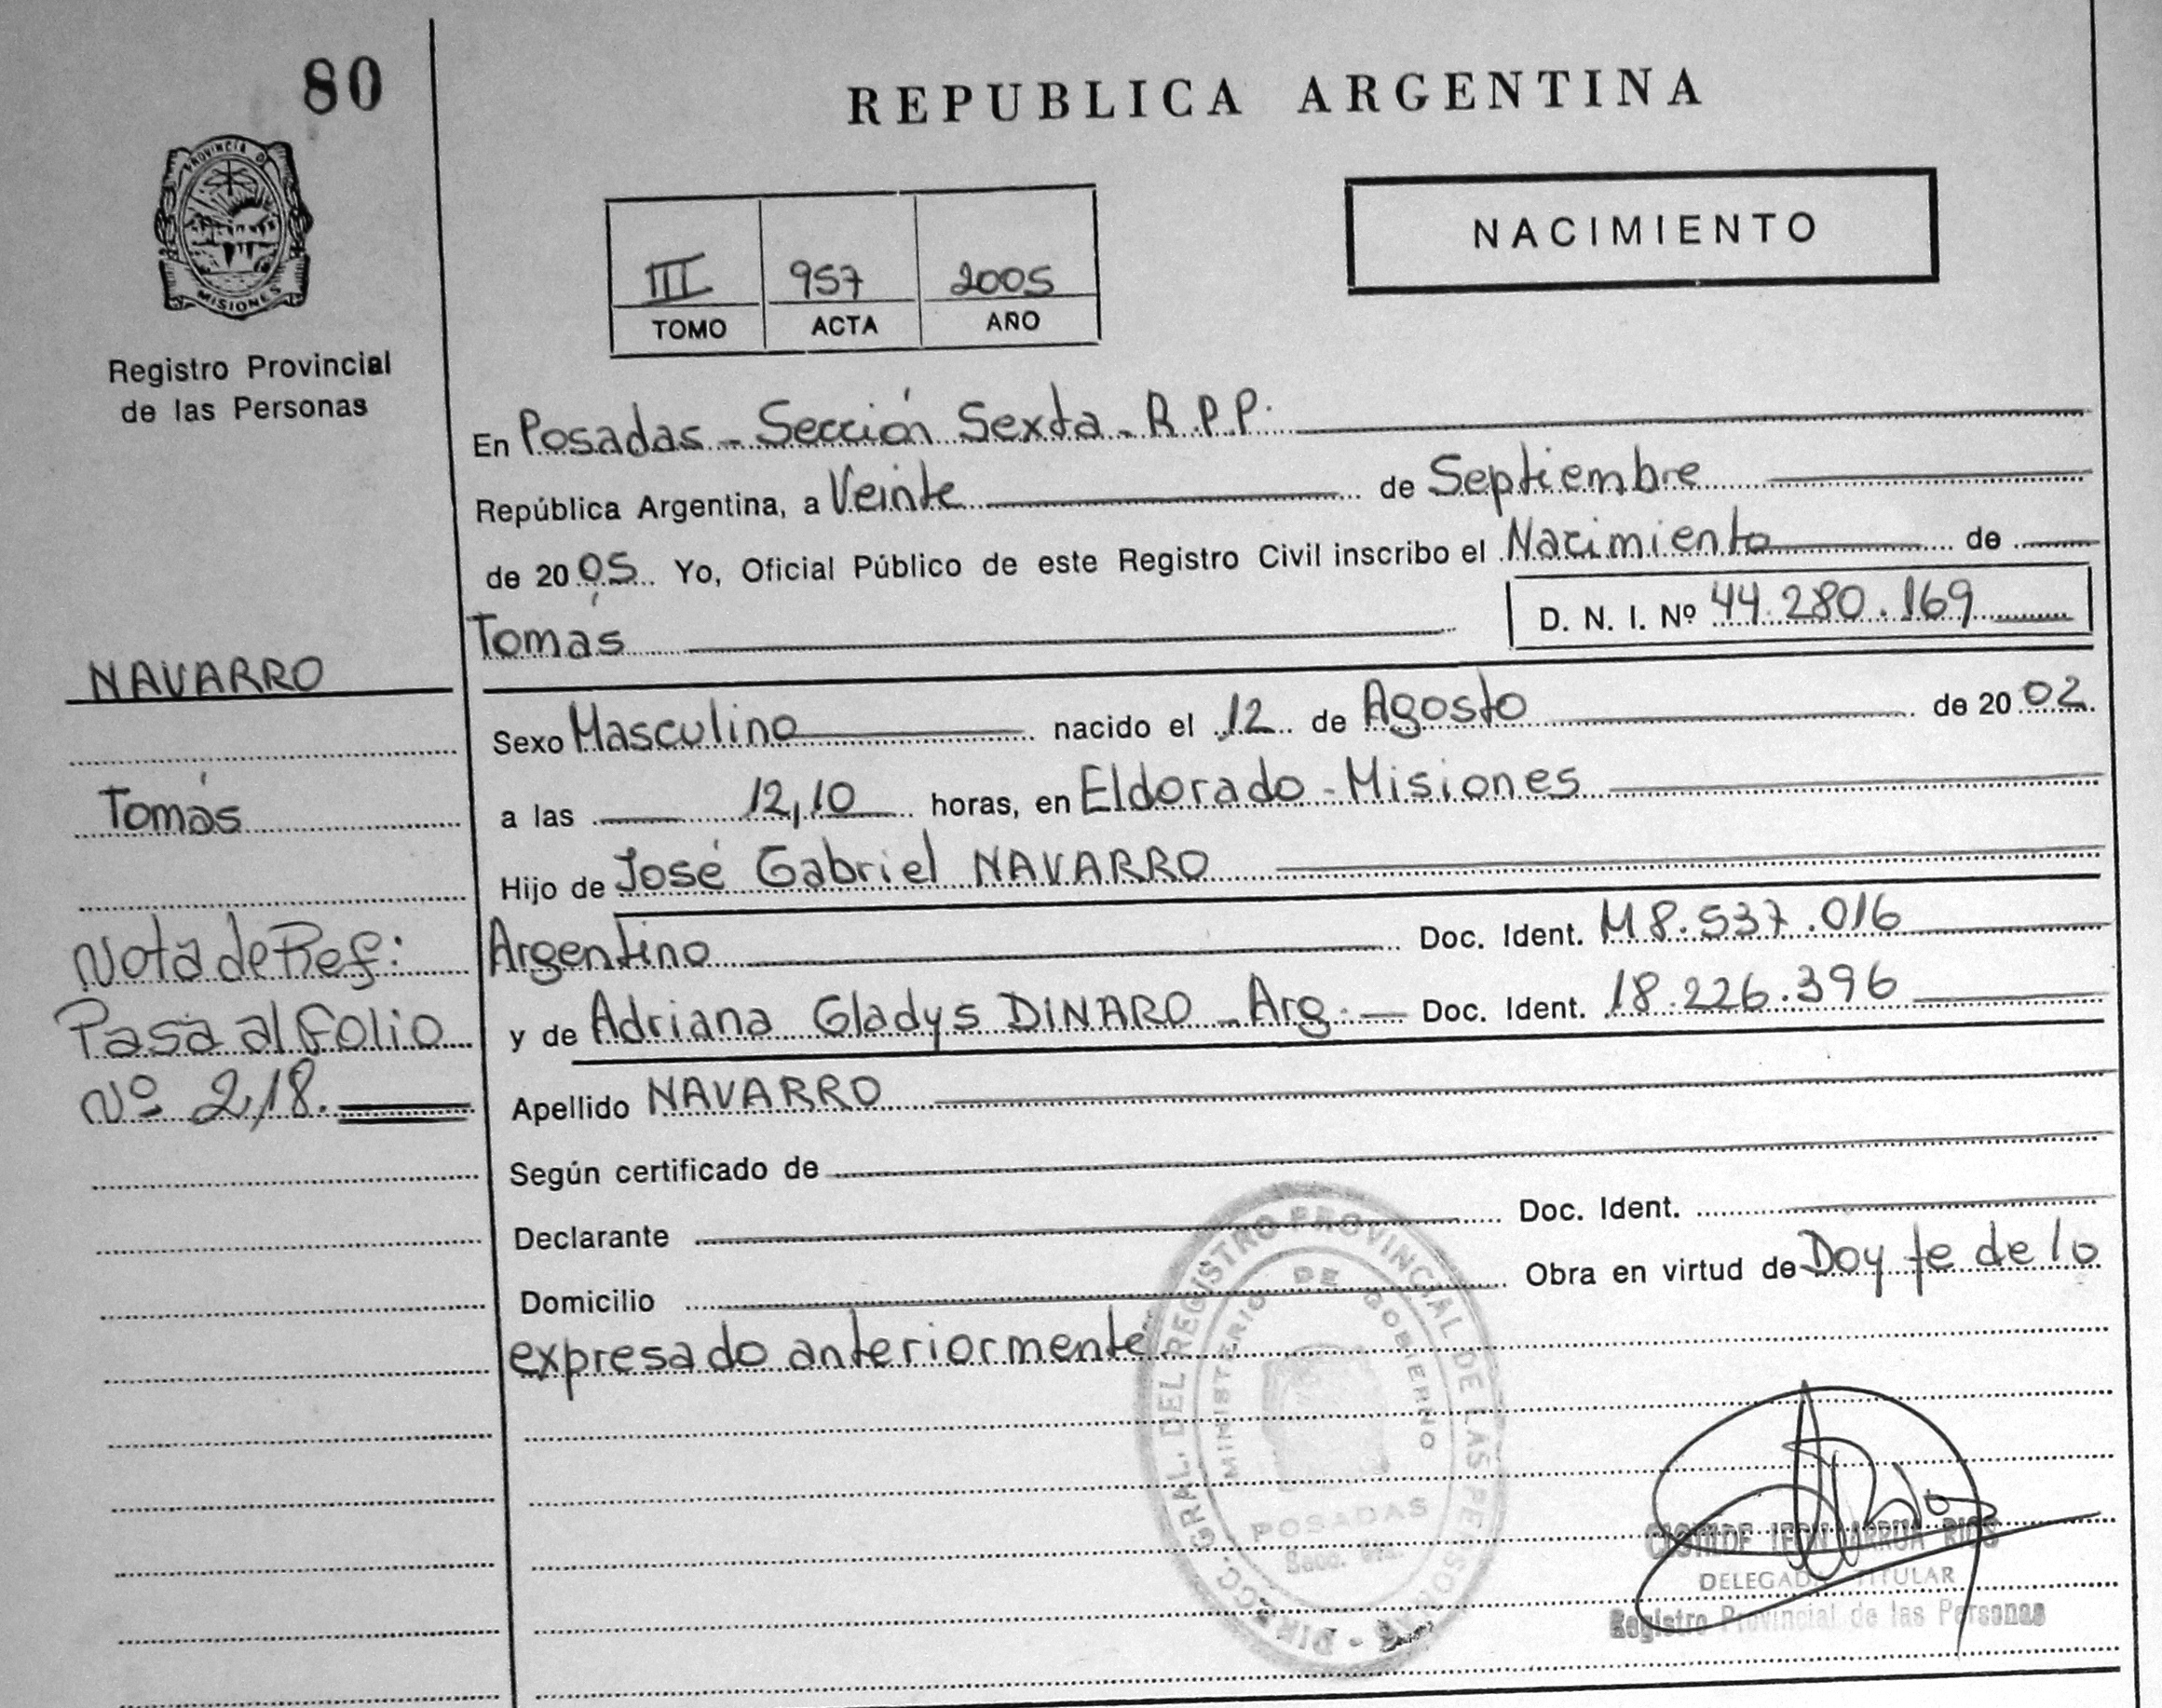 80
REPUBLICA ARGENTINA
PROVINCIA D
MISIONES
Registro Provincial
de las Personas
NACIMIENTO
III 957 2005
TOMO ACTA AÑO
En Posadas - Sección Sexta - R.P.P.
República Argentina, a Veinte de Septiembre
de 2005 Yo, Oficial Público de este Registro Civil inscribo el Nacimiento de
Tomás D. N. I. Nº 44.280.169
NAVARRO
Tomás
Nota de Ref:
Pasa al folio
Nº 218.
Sexo Masculino nacido el 12 de Agosto de 2002
a las 12,10 horas, en Eldorado - Misiones
Hijo de José Gabriel NAVARRO
Argentino Doc. Ident. M8.537.016
y de Adriana Gladys DINARO - Arg. Doc. Ident. 18.226.396
Apellido NAVARRO
Según certificado de
Declarante Doc. Ident.
Domicilio Obra en virtud de Doy fe de lo
expresado anteriormente
DIRECC. GRAL. DEL REGISTRO PROVINCIAL DE LAS PERSONAS
MINISTERIO DE GOBIERNO
POSADAS
Secc.
RIOS
DELEGADA TITULAR
Registro Provincial de las Personas